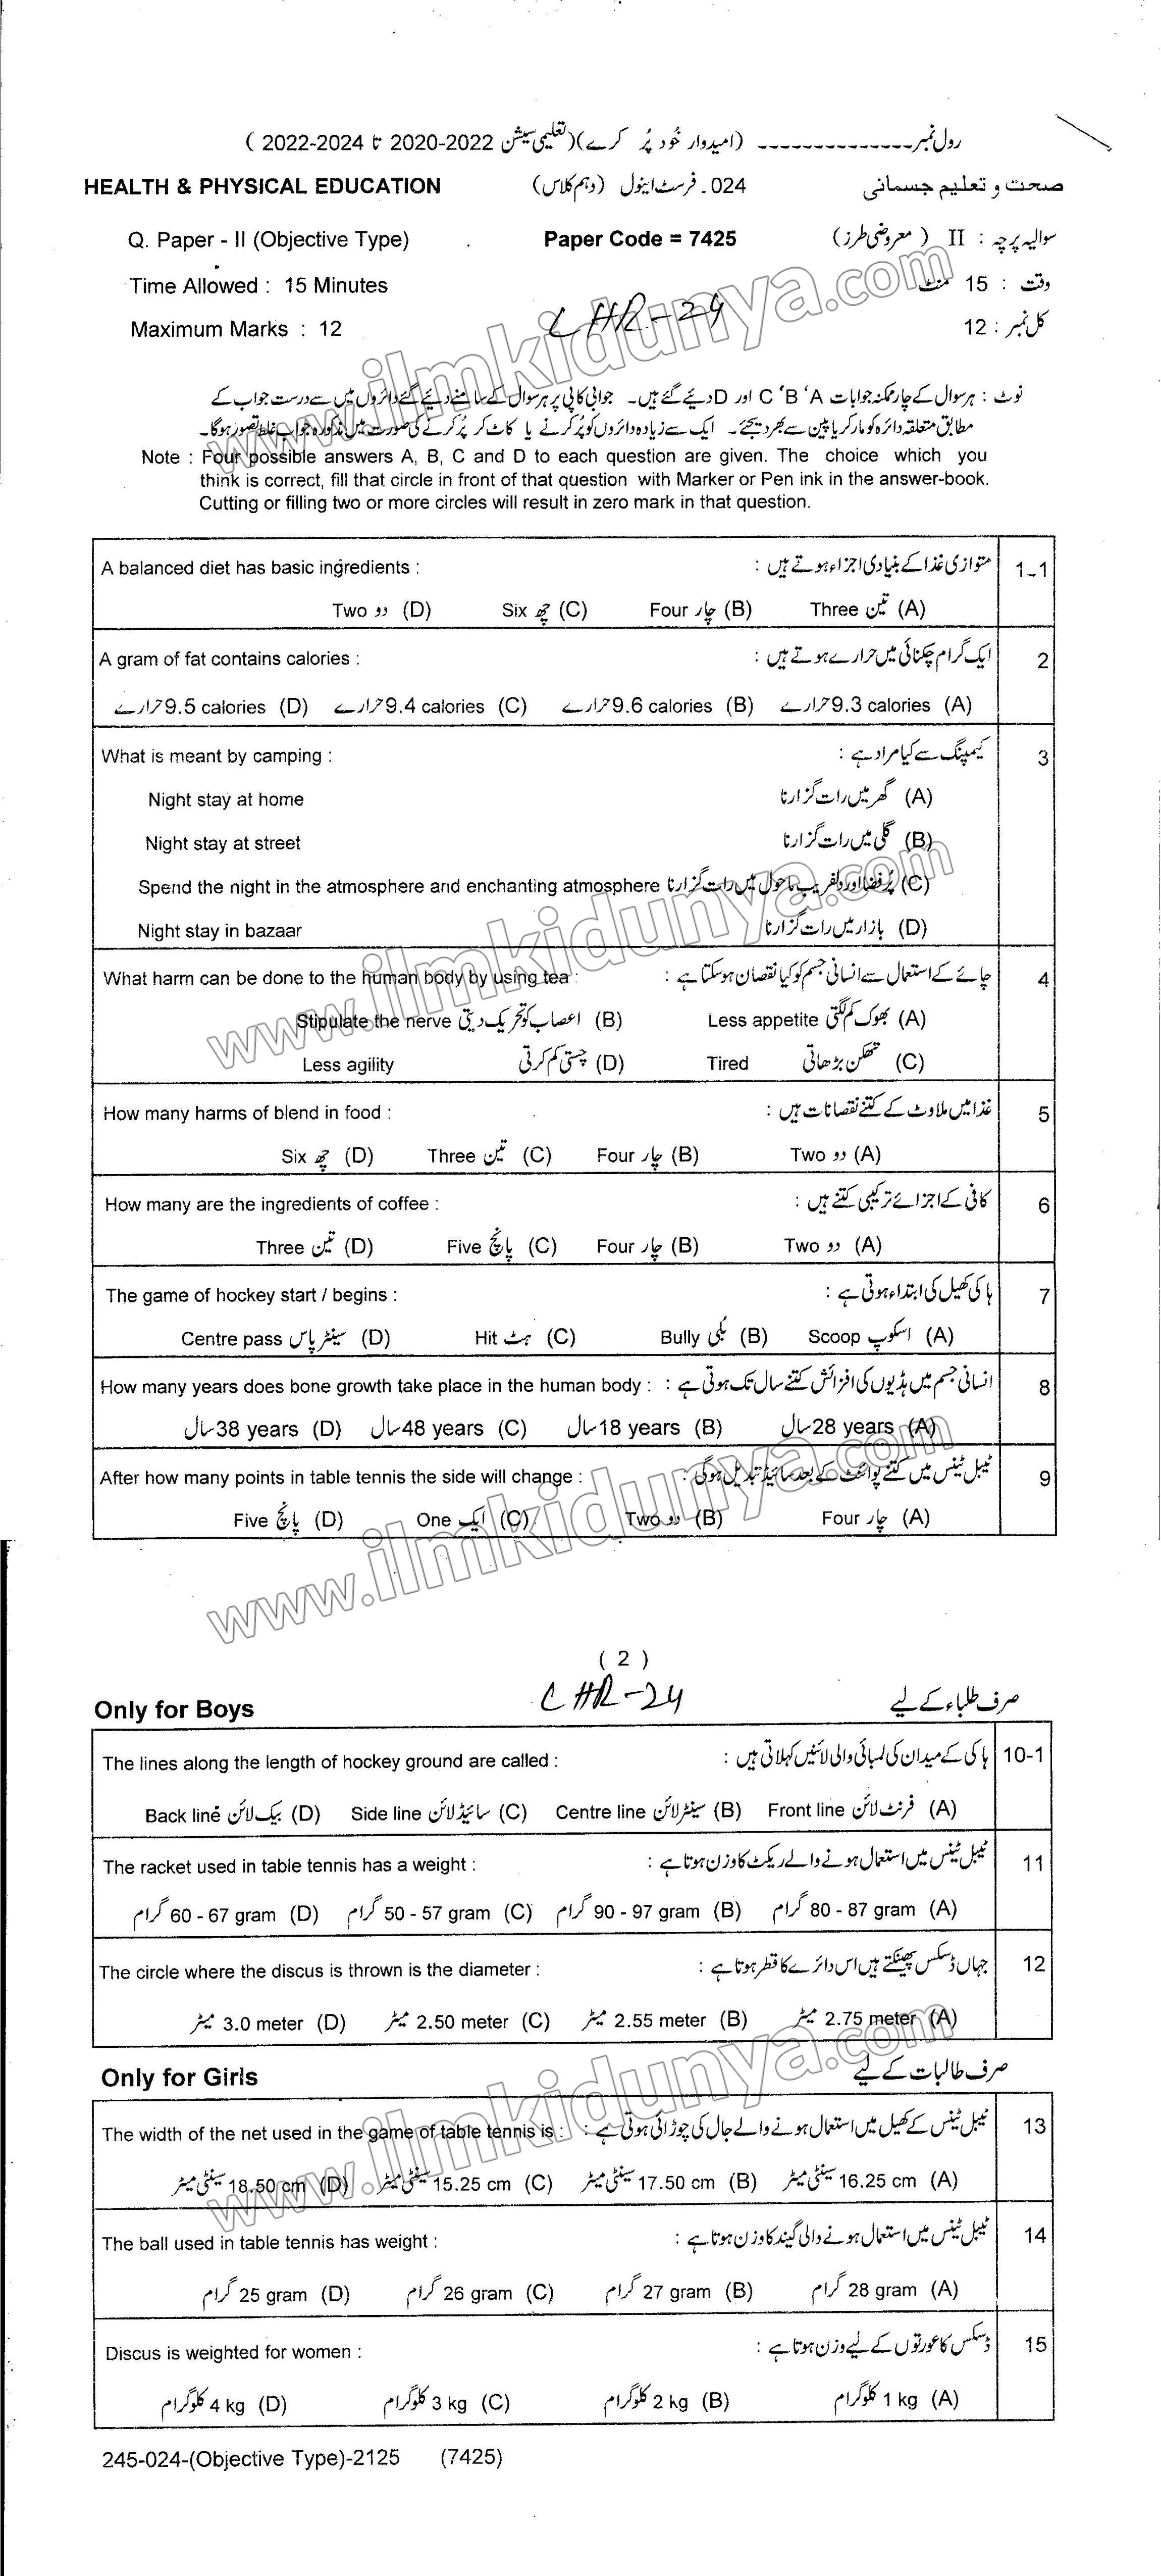 رول نمبر ـ ـ ـ ـ ـ ـ ـ ـ ـ ـ ـ ـ ـ ـ (امیدوار خُود پُر کرے)(تعلیمی سیشن 2022-2020 تا 2024-2022 )
HEALTH & PHYSICAL EDUCATION 024۔ فرسٹ اینول (دہم کلاس) صحت و تعلیم جسمانی
Q. Paper - II (Objective Type) Paper Code = 7425 سوالیہ پرچہ : II ( معروضی طرز)
Time Allowed : 15 Minutes وقت : 15 منٹ
Maximum Marks : 12 LHR-24 کل نمبر : 12
www.ilmkidunya.com
نوٹ : ہر سوال کے چار ممکنہ جوابات C ‘B ‘A اور D دئیے گئے ہیں۔ جوابی کاپی پر ہر سوال کے سامنے دئیے گئے دائروں میں سے درست جواب کے
مطابق متعلقہ دائرہ کو مارکر یا پین سے بھر دیجئے۔ ایک سے زیادہ دائروں کو پُر کرنے یا کاٹ کر پُر کرنے کی صورت میں مذکورہ جواب غلط تصور ہوگا۔
Note : Four possible answers A, B, C and D to each question are given. The choice which you
think is correct, fill that circle in front of that question with Marker or Pen ink in the answer-book.
Cutting or filling two or more circles will result in zero mark in that question.
A balanced diet has basic ingredients : متوازی غذا کے بنیادی اجزاء ہوتے ہیں : 1۔1
Two دو (D) Six چھ (C) Four چار (B) Three تین (A)
A gram of fat contains calories : ایک گرام چکنائی میں حرارے ہوتے ہیں : 2
9.5 calories حرارے (D) 9.4 calories حرارے (C) 9.6 calories حرارے (B) 9.3 calories حرارے (A)
What is meant by camping : کیمپنگ سے کیا مراد ہے : 3
Night stay at home گھر میں رات گزارنا (A)
Night stay at street گلی میں رات گزارنا (B)
Spend the night in the atmosphere and enchanting atmosphere پُرفضا اور دلفریب ماحول میں رات گزارنا (C)
Night stay in bazaar بازار میں رات گزارنا (D)
What harm can be done to the human body by using tea : چائے کے استعمال سے انسانی جسم کو کیا نقصان ہوسکتا ہے : 4
Stipulate the nerve اعصاب کو تحریک دیتی (B) Less appetite بھوک کم لگتی (A)
Less agility چستی کم کرتی (D) Tired تھکن بڑھاتی (C)
www.ilmkidunya.com
How many harms of blend in food : غذا میں ملاوٹ کے کتنے نقصانات ہیں : 5
Six چھ (D) Three تین (C) Four چار (B) Two دو (A)
How many are the ingredients of coffee : کافی کے اجزائے ترکیبی کتنے ہیں : 6
Three تین (D) Five پانچ (C) Four چار (B) Two دو (A)
The game of hockey start / begins : ہاکی کھیل کی ابتداء ہوتی ہے : 7
Centre pass سینٹر پاس (D) Hit ہٹ (C) Bully بُلی (B) Scoop اسکوپ (A)
How many years does bone growth take place in the human body : انسانی جسم میں ہڈیوں کی افزائش کتنے سال تک ہوتی ہے : 8
38 years سال (D) 48 years سال (C) 18 years سال (B) 28 years سال (A)
After how many points in table tennis the side will change : ٹیبل ٹینس میں کتنے پوائنٹ کے بعد سائیڈ تبدیل ہوگی : 9
Five پانچ (D) One ایک (C) Two دو (B) Four چار (A)
www.ilmkidunya.com
( 2 )
Only for Boys LHR-24 صرف طلباء کے لیے
The lines along the length of hockey ground are called : ہاکی کے میدان کی لمبائی والی لائنیں کہلاتی ہیں : 10-1
Back line بیک لائن (D) Side line سائیڈ لائن (C) Centre line سینٹر لائن (B) Front line فرنٹ لائن (A)
The racket used in table tennis has a weight : ٹیبل ٹینس میں استعمال ہونے والے ریکٹ کا وزن ہوتا ہے : 11
60 - 67 gram گرام (D) 50 - 57 gram گرام (C) 90 - 97 gram گرام (B) 80 - 87 gram گرام (A)
The circle where the discus is thrown is the diameter : جہاں ڈسکس پھینکتے ہیں اس دائرے کا قطر ہوتا ہے : 12
3.0 meter میٹر (D) 2.50 meter میٹر (C) 2.55 meter میٹر (B) 2.75 meter میٹر (A)
Only for Girls صرف طالبات کے لیے
The width of the net used in the game of table tennis is : ٹیبل ٹینس کے کھیل میں استعمال ہونے والے جال کی چوڑائی ہوتی ہے : 13
18.50 cm سینٹی میٹر (D) 15.25 cm سینٹی میٹر (C) 17.50 cm سینٹی میٹر (B) 16.25 cm سینٹی میٹر (A)
www.ilmkidunya.com
The ball used in table tennis has weight : ٹیبل ٹینس میں استعمال ہونے والی گیند کا وزن ہوتا ہے : 14
25 gram گرام (D) 26 gram گرام (C) 27 gram گرام (B) 28 gram گرام (A)
Discus is weighted for women : ڈسکس کا عورتوں کے لیے وزن ہوتا ہے : 15
4 kg کلوگرام (D) 3 kg کلوگرام (C) 2 kg کلوگرام (B) 1 kg کلوگرام (A)
245-024-(Objective Type)-2125 (7425)